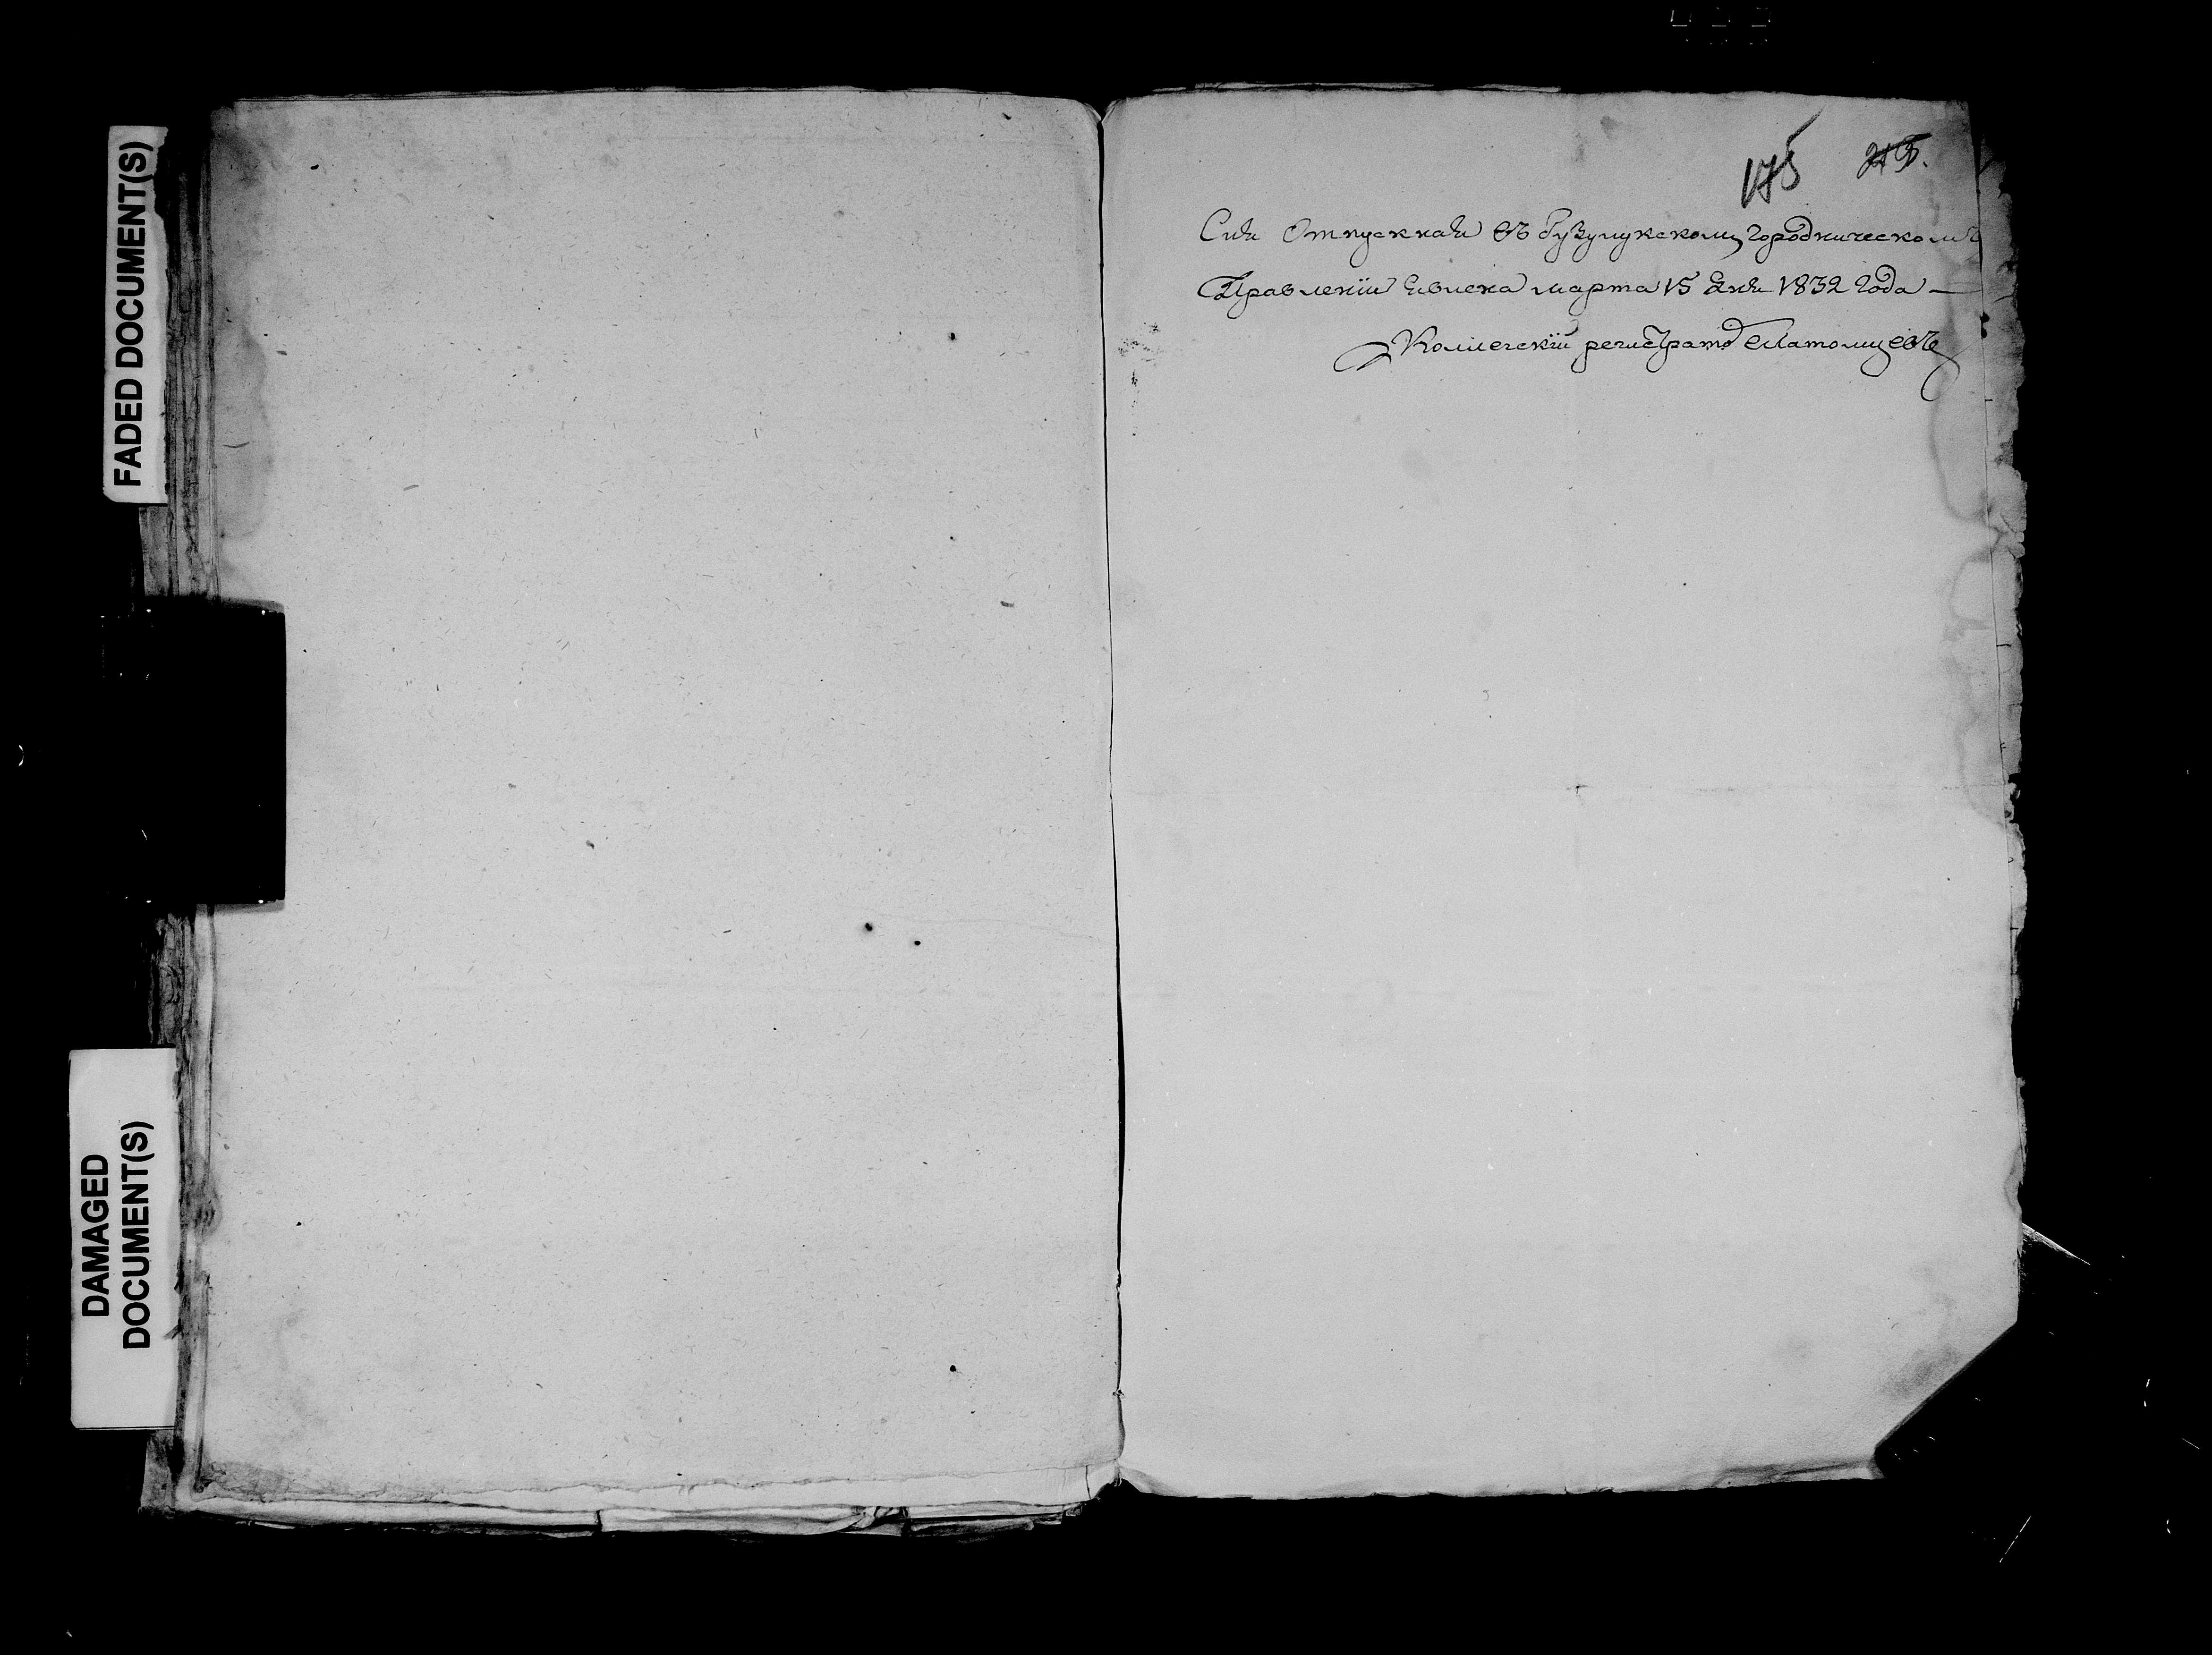 FADED DOCUMENT(S)
DAMAGED
DOCUMENT(S)
175 215.
Сия Отпускная въ бузулукскомъ городническомъ
Правленіи явлена марта 15 дня 1832 года —
Коллегскій регистраторъ